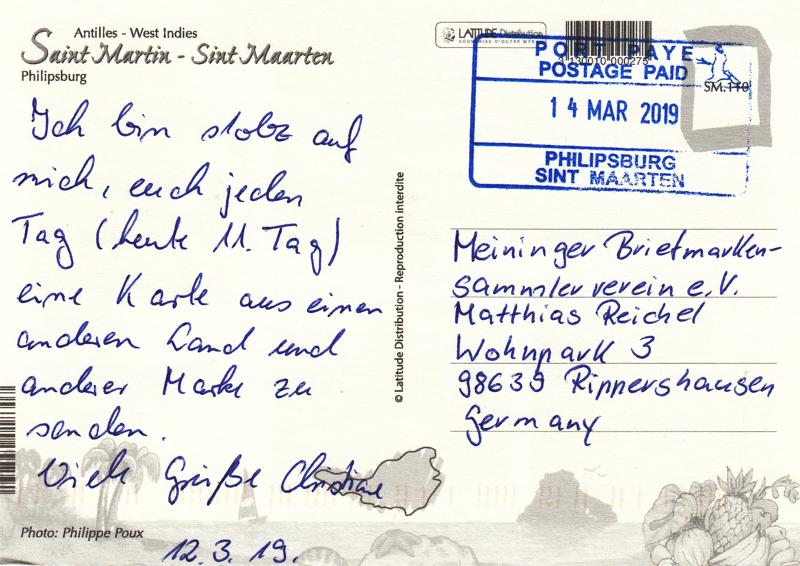 Antilles - West Indies
Saint Martin - Sint Maarten
Philipsburg
LATITUDE Distribution
3 130010 000275
PORT PAYE
POSTAGE PAID
SM.110
14 MAR 2019
PHILIPSBURG
SINT MAARTEN
Ich bin stolz auf
mich, euch jeden
Tag (heute 11. Tag)
eine Karte aus einen
anderen Land und
anderer Marke zu
senden.
Viele Grüße Christiane
12.3.19.
© Latitude Distribution - Reproduction interdite
Meininger Briefmarken-
sammlerverein e.V.
Matthias Reichel
Wohnpark 3
98639 Rippershausen
Germany
Photo: Philippe Poux